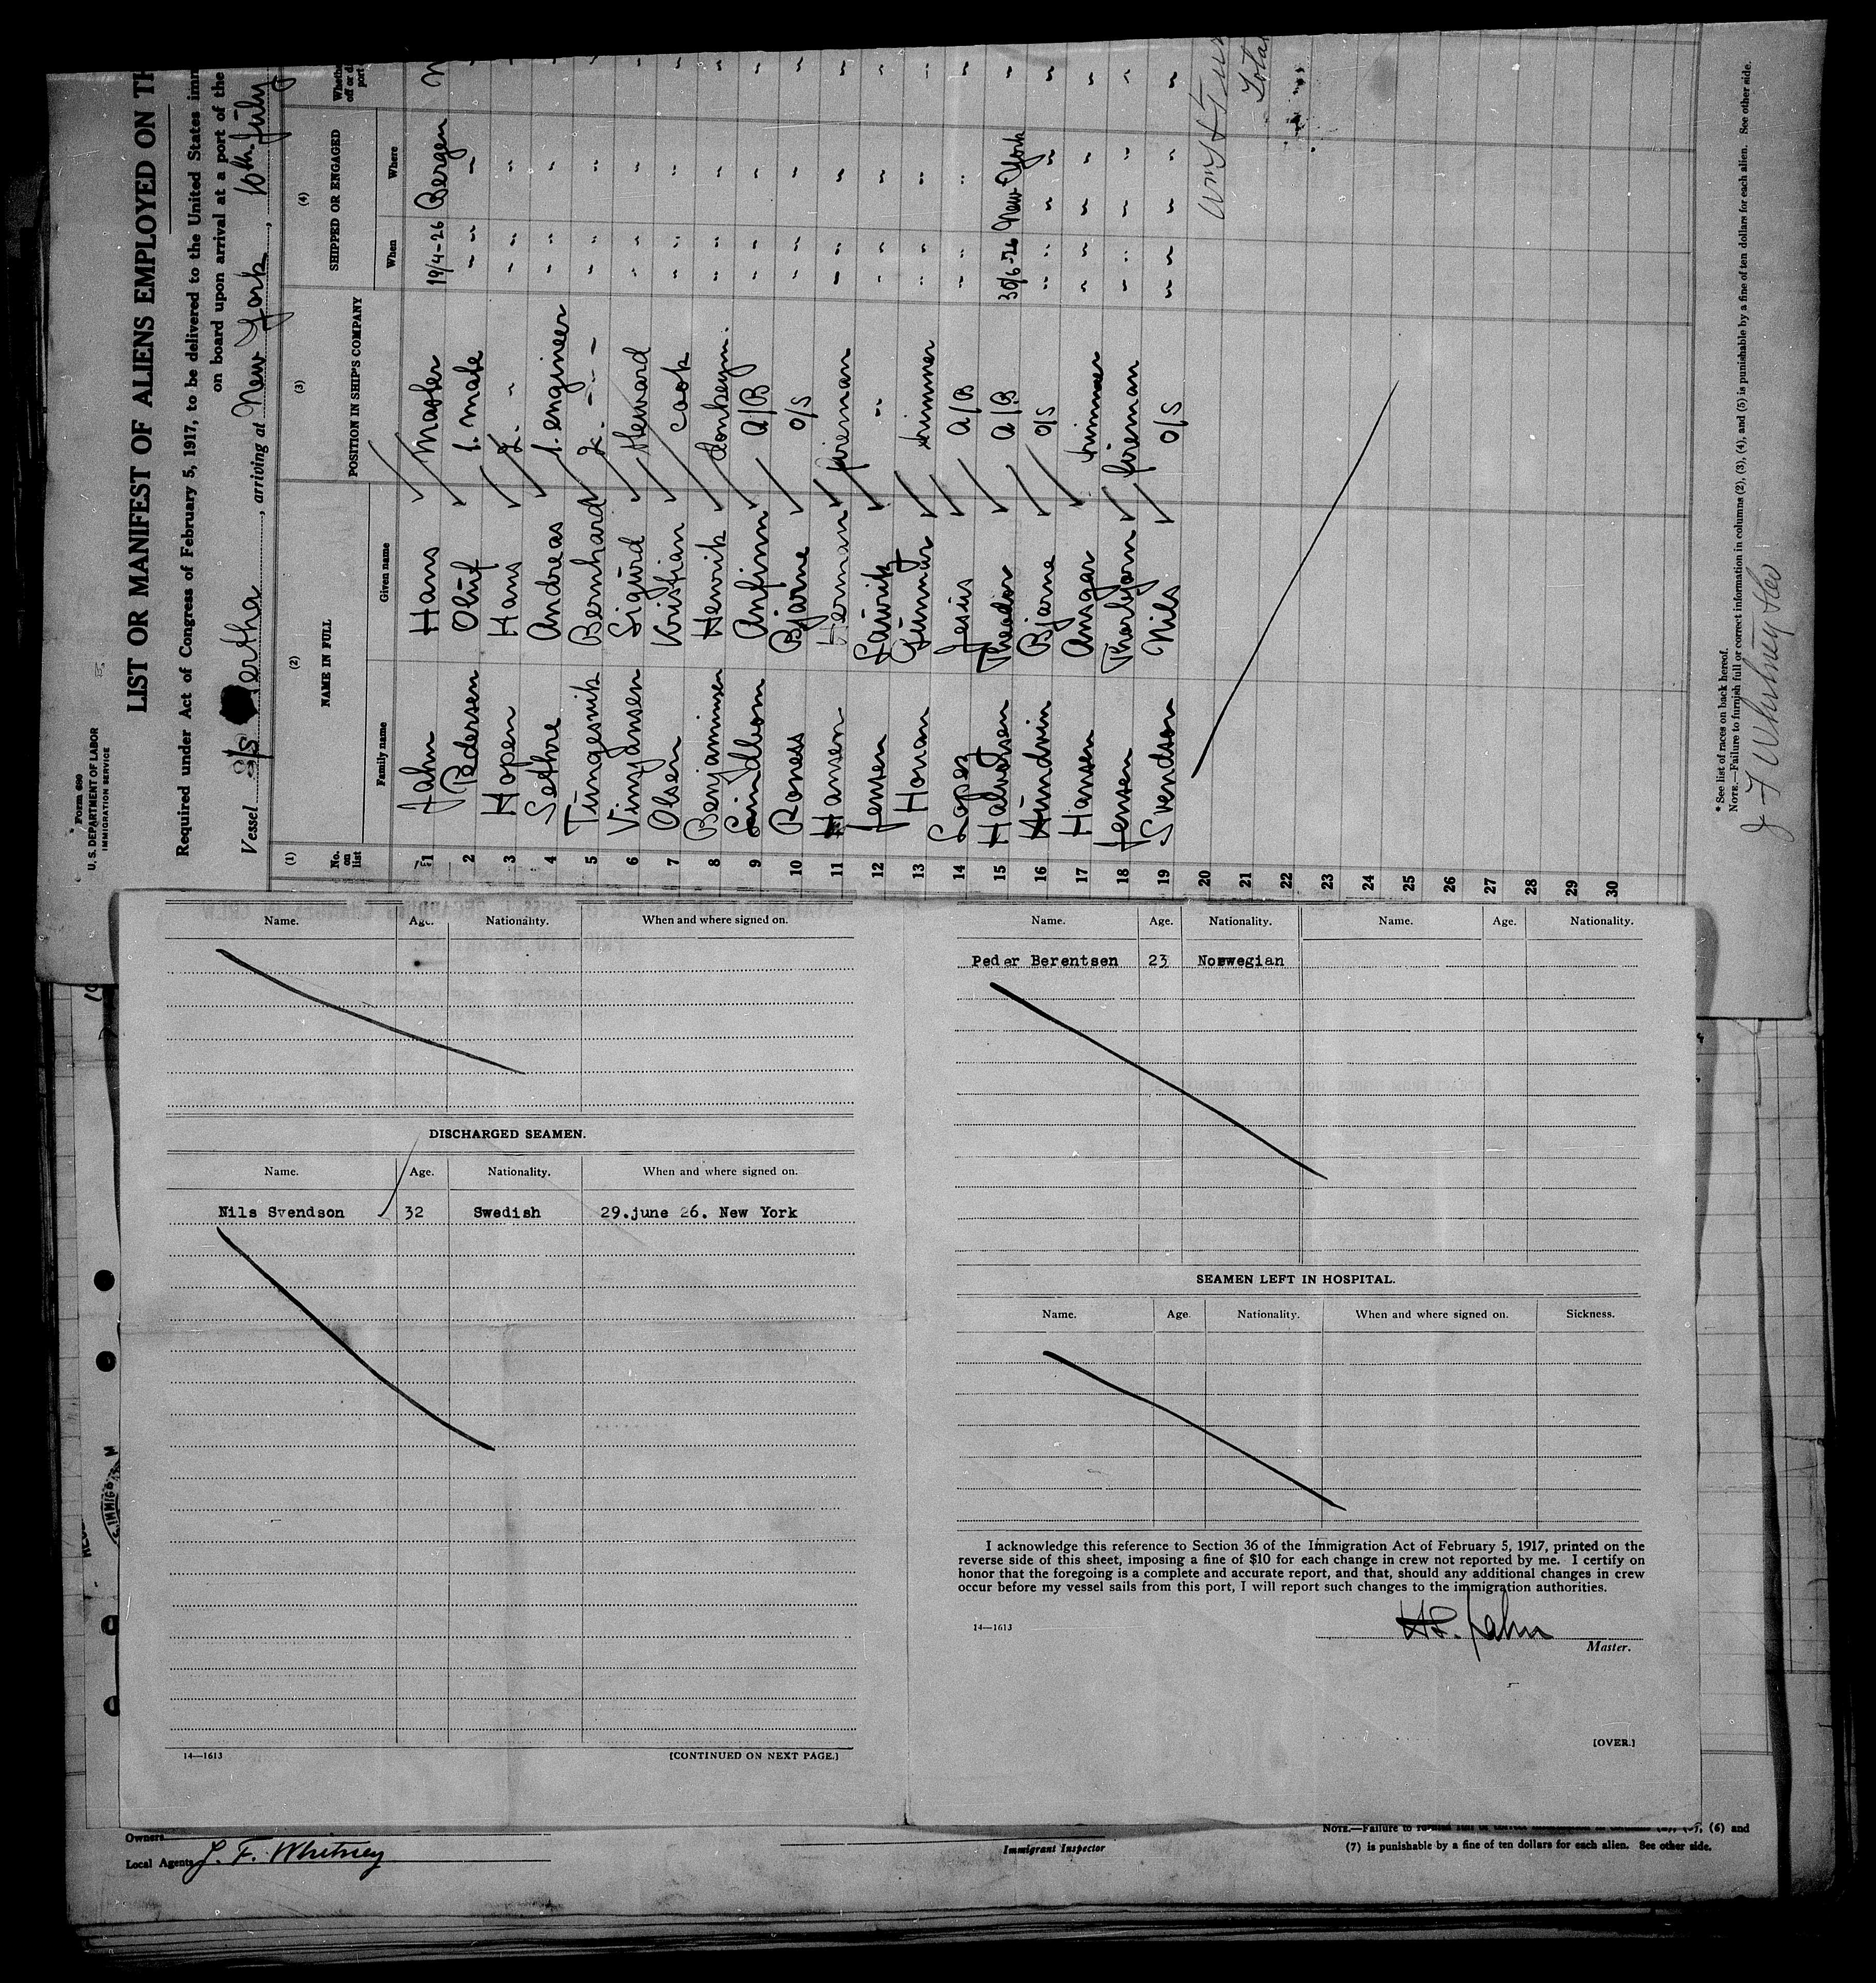 Form 689
U. S. DEPARTMENT OF LABOR
IMMIGRATION SERVICE
LIST OR MANIFEST OF ALIENS EMPLOYED ON TH
Required under Act of Congress of February 5, 1917, to be delivered to the United States imm
on board upon arrival at a port of the
Vessel s/s ertha, arriving at New York, 10th July
(1) (2) (3) (4)
No. on list NAME IN FULL POSITION IN SHIP'S COMPANY SHIPPED OR ENGAGED
Family name Given name When Where
1 Jahn Hans Master 19/4-26 Bergen
2 Pedersen Oluf 1. mate " " "
3 Hopen Hans 2. " " " "
4 Sethre Andreas 1. engineer " " "
5 Tungesvik Bernhard 2. - - - " " "
6 Vinnjansen Sigurd Steward " "
7 Olsen Kristian cook " " "
8 Benjaminsen Henrik donkeym. " " "
9 Lindblom Anfinn A/B " " "
10 Roness Bjarne o/s " " "
11 Hansen Herman fireman " " "
12 Jensen Lauvik " " " "
13 Homan Gunnar trimmer " " "
14 Lopez Jesus A/B " " "
15 Halvorsen Theodor A/B 30/6-26 New York
16 Hundvin Bjarne o/s " " " "
17 Hansen Ansgar trimmer " " " "
18 Jensen Thorbjørn fireman " " " "
19 Svendson Nils o/s " " " "
20
21
22
23
24
25
26
27
28
29
30
* See list of races on back hereof.
NOTE.—Failure to furnish full or correct information in columns (2), (3), (4), and (5) is punishable by a fine of ten dollars for each alien. See other side.
J F Whitney
Name. Age. Nationality. When and where signed on.
DISCHARGED SEAMEN.
Name. Age. Nationality. When and where signed on.
Nils Svendson 32 Swedish 29.june 26. New York
14—1613 [CONTINUED ON NEXT PAGE.]
Name. Age. Nationality. Name. Age. Nationality.
Peder Berentsen 23 Norwegian
SEAMEN LEFT IN HOSPITAL.
Name. Age. Nationality. When and where signed on. Sickness.
I acknowledge this reference to Section 36 of the Immigration Act of February 5, 1917, printed on the
reverse side of this sheet, imposing a fine of $10 for each change in crew not reported by me. I certify on
honor that the foregoing is a complete and accurate report, and that, should any additional changes in crew
occur before my vessel sails from this port, I will report such changes to the immigration authorities.
14—1613
Jahn
Master.
[OVER.]
Owners
Local Agents J. F. Whitney
Immigrant Inspector
NOTE.—Failure to (6) and
(7) is punishable by a fine of ten dollars for each alien. See other side.